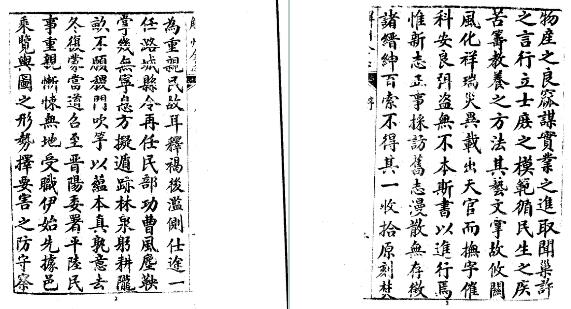 為重親民故耳釋褐後濫側仕途一
任潞城縣令再任民部功曹風塵鞅
掌幾無寧息方擬遁跡林泉躬耕隴
畝不願稷門吹竽以蘊本真孰意去
冬復蒙當道召至晉陽委署平陸民
事重親慚悚無地受職伊始先據邑
乘覽輿圖之形勢擇要害之防守察
序
物産之良窳謀實業之進取聞巢許
之言行立士庶之模範循民生之疾
苦籌教養之方法其藝文掌故攸關
風化祥瑞災異載出天官而撫字催
科安良弭盜無不本斯書以進行焉
惟新志正事採訪舊志漫散無存徵
諸縉紳百索不得其一收拾原刻